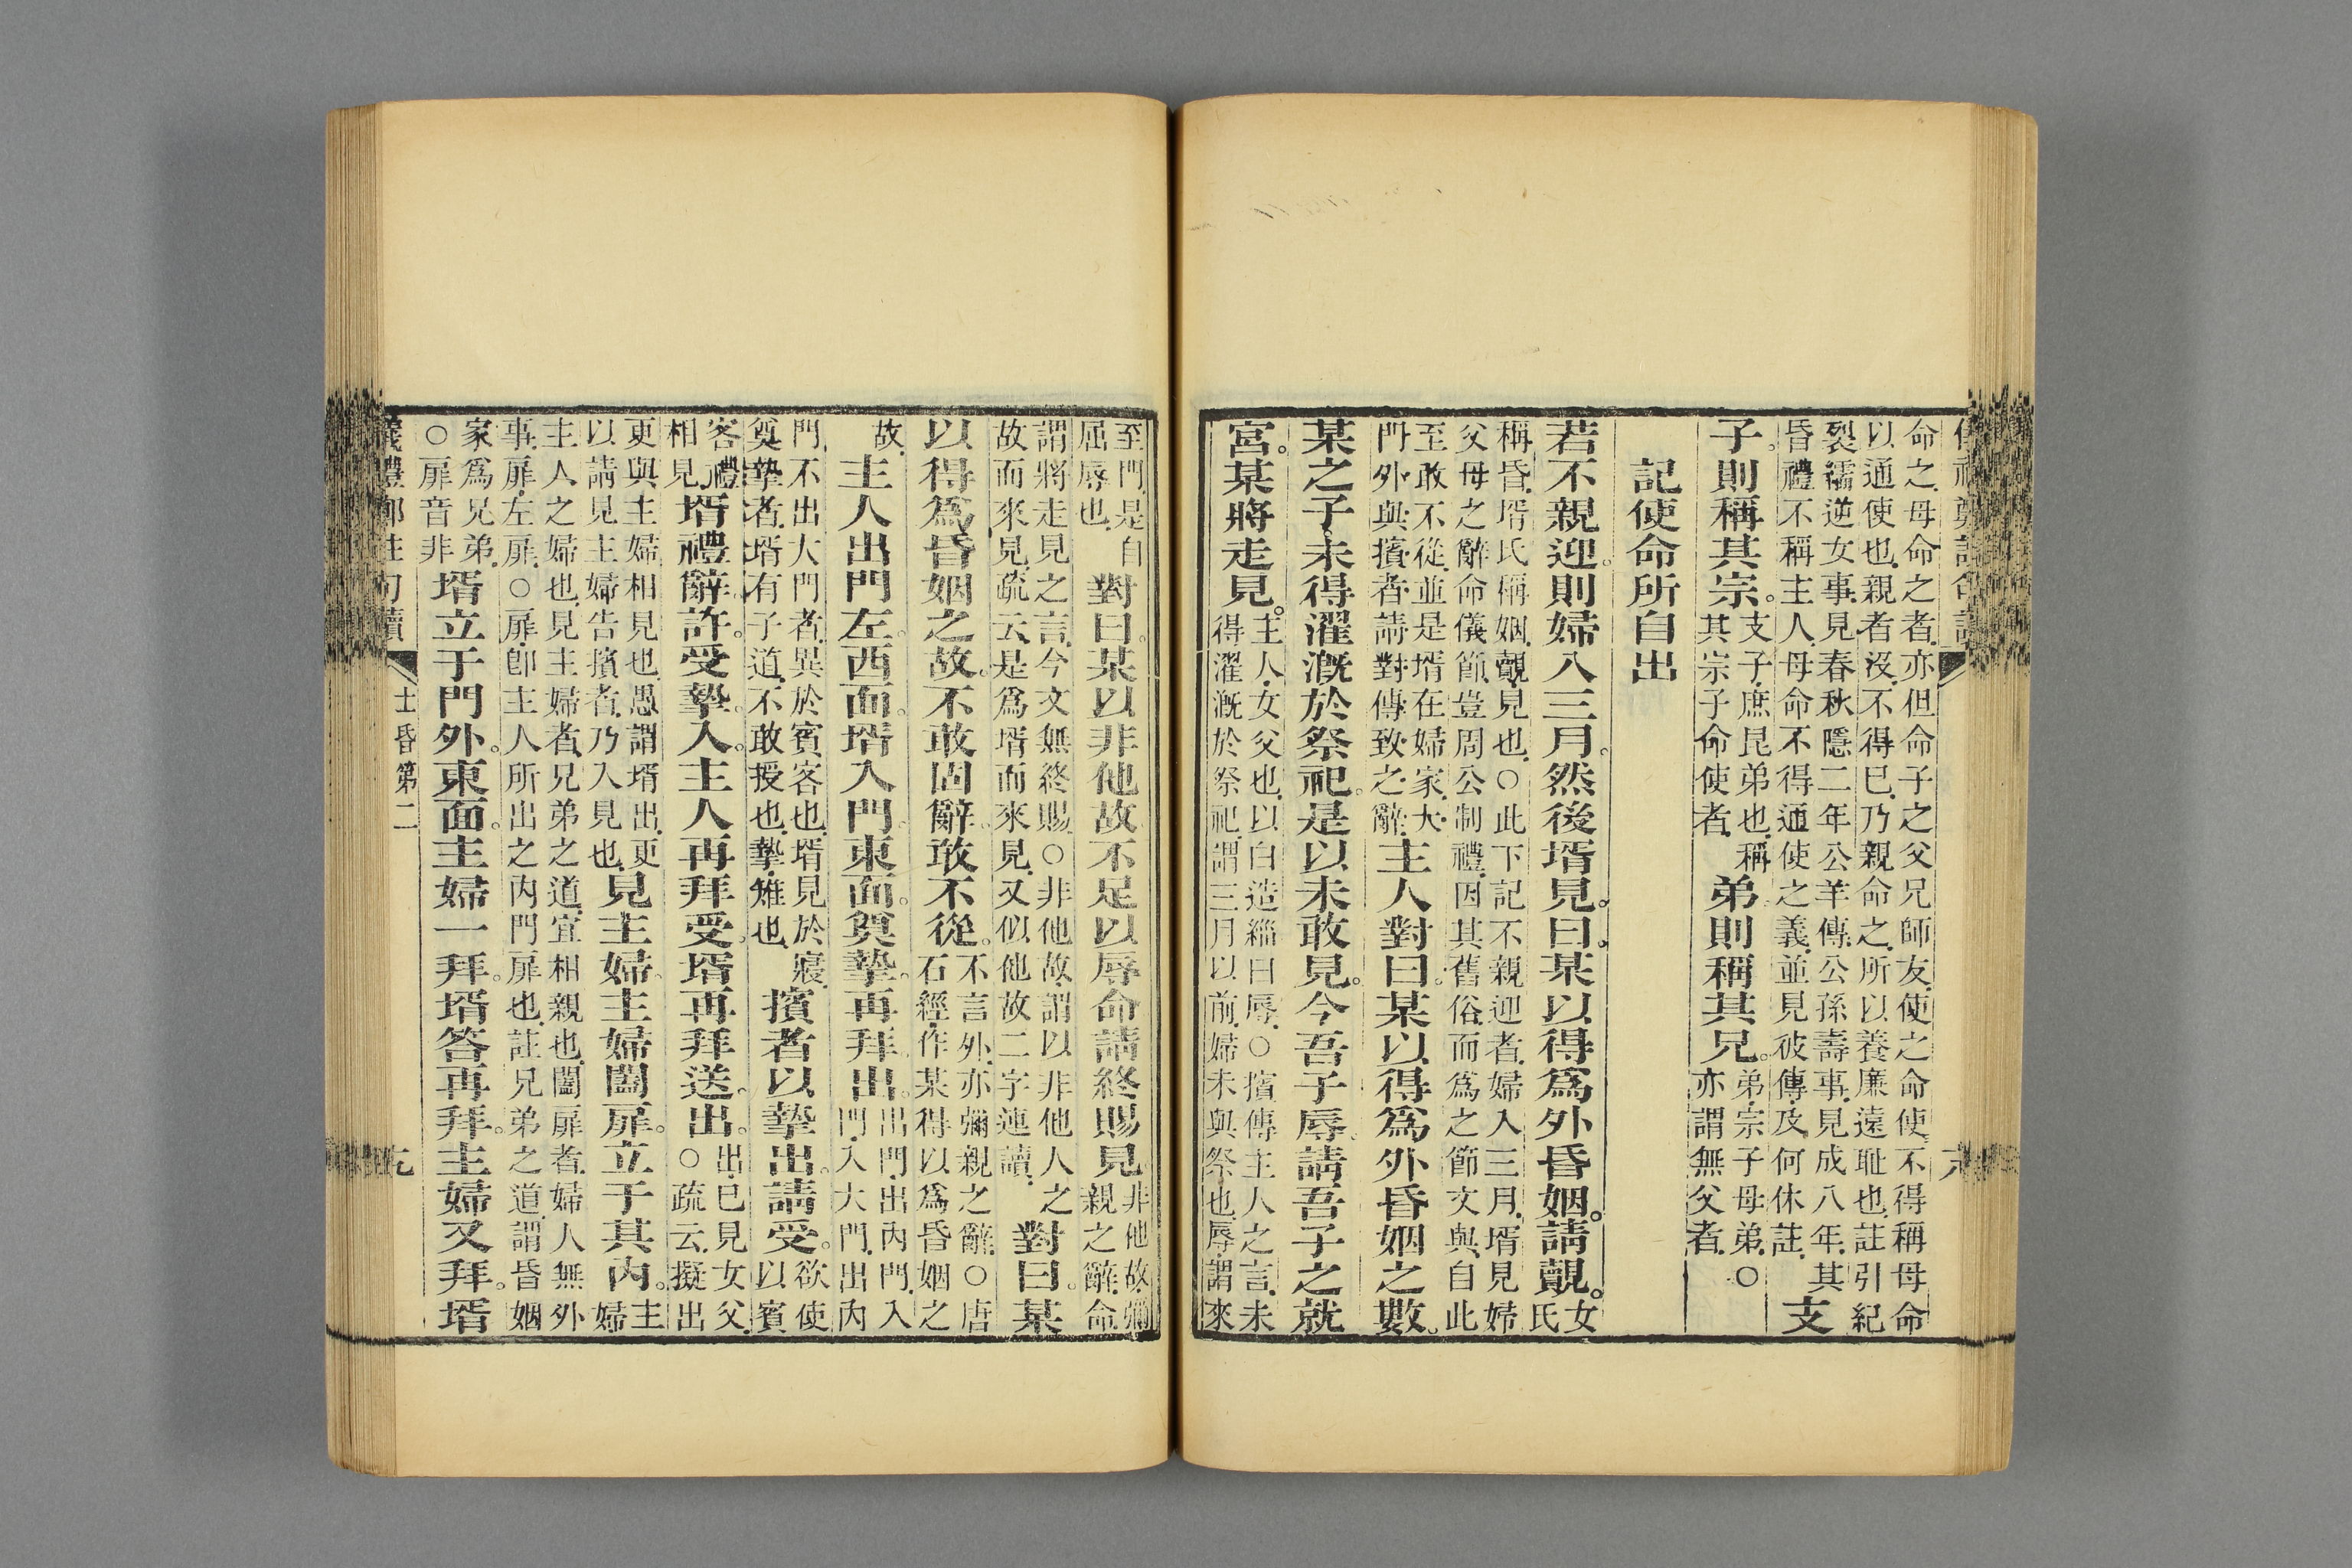 命之母命之者亦但命子之父兄師友使之命使不得稱母命
以通使也親者沒不得已乃親命之所以養廉遠恥也註引紀
裂繻逆女事見春秋隱二年公羊傳公孫壽事見成八年其
昏禮不稱主人母命不得通使之義並見彼傳及何休註
支
子則稱其宗。
支子庶昆弟也稱
其宗子命使者
弟則稱其兄。
弟宗子母弟○
亦謂無父者
記使命所自出
若不親迎。則婦入三月。然後壻見。曰。某以得爲外昏姻。請覿。
女
氏
稱昏壻氏稱姻覿見也○此下記不親迎者婦入三月壻見婦
父母之辭命儀節豈周公制禮因其舊俗而爲之節文與自此
至敢不從並是壻在婦家大
門外與擯者請對傳致之辭
主人對曰。某以得爲外昏姻之數。
某之子未得濯漑於祭祀。是以未敢見。今吾子辱。請吾子之就
宮。某將走見。
主人女父也以白造緇曰辱○擯傳主人之言未
得濯漑於祭祀謂三月以前婦未與祭也辱謂來
至門是自
屈辱也
對曰。某以非他故不足以辱命請終賜見
非他故彌
親之辭命
謂將走見之言今文無終賜○非他故謂以非他人之
故而來見疏云是爲壻而來見又似他故二字連讀
對曰。某
以得爲昏姻之故。不敢固辭。敢不從。
不言外亦彌親之辭○唐
石經作某得以爲昏姻之
故
主人出門左。西面。壻入門。東面。奠摯。再拜。出。
出門出內門入
門入大門出內
門不出大門者異於賓客也壻見於寢
奠摯者壻有子道不敢授也摯雉也
擯者以摯出。請受。
欲使
以賓
客禮
相見
壻禮辭。許。受摯。入。主人再拜受。壻再拜送。出。
出已見女父
○疏云擬出
更與主婦相見也愚謂壻出更
以請見主婦告擯者乃入見也
見主婦。主婦闔扉。立于其內。
主
婦
主人之婦也見主婦者兄弟之道宜相親也闔扉者婦人無外
事扉左扉○扉卽主人所出之內門扉也註兄弟之道謂昏姻
家爲兄弟
○扉音非
壻立于門外。東面。主婦一拜。壻答再拜。主婦又拜。壻
儀禮鄭註句讀
士昏第二